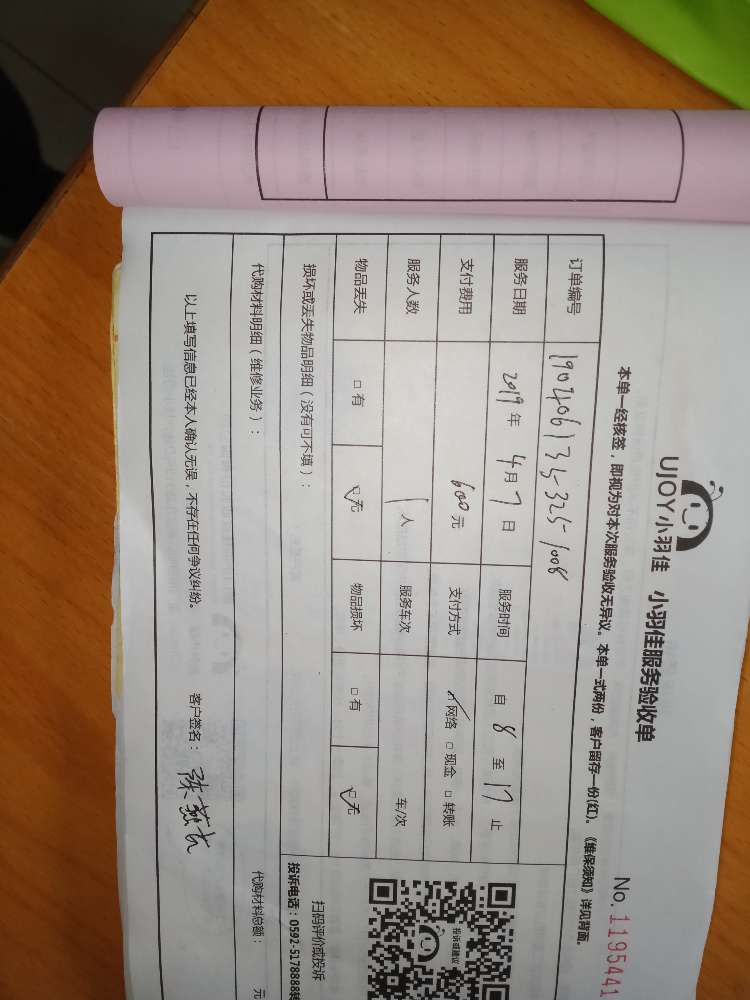 UJOY小羽佳 小羽佳服务验收单
No.1195441
本单一经核签，即视为对本次服务验收无异议。本单一式两份，客户留存一份(红)。《维保须知》详见背面。
订单编号 190406135-325-1008
服务日期 2019年 4月 7日 服务时间 自 8 至 17 止
支付费用 600元 支付方式 ☑网络 □现金 □转账
服务人数 1人 服务车次 车/次
物品丢失 □有 ☑无 物品损坏 □有 ☑无
损坏或丢失物品明细（没有可不填）：
投诉或建议
扫码评价或投诉
投诉电话：0592-5178888转
代购材料明细（维修业务）： 代购材料总额： 元
以上填写信息已经本人确认无误，不存在任何争议纠纷。 客户签名：